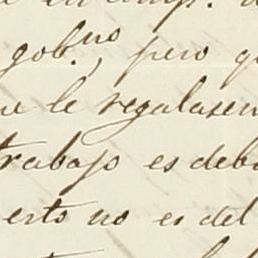 gob.no, pero q
le regalasen
trabajo es deb
esto no es del